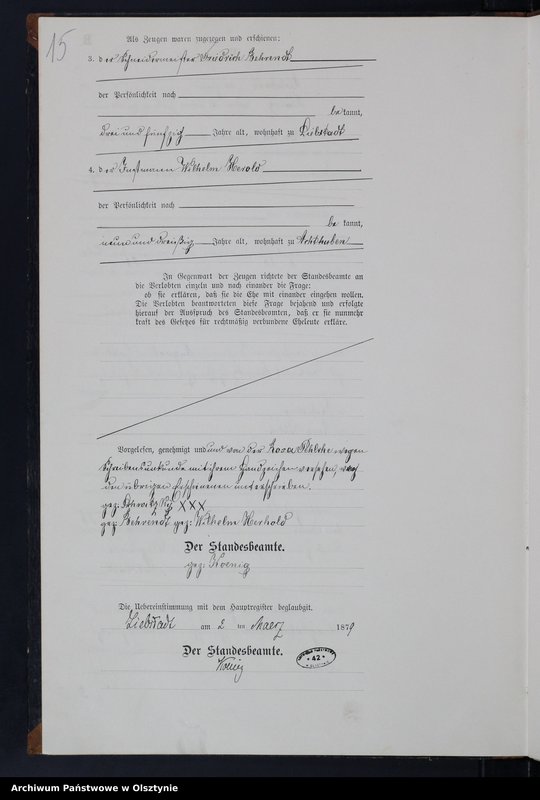 15
Als Zeugen waren zugezogen und erschienen:
3. der Schneidermeister Friedrich Behrendt
der Persönlichkeit nach
be kannt,
drei und fünfzig Jahre alt, wohnhaft zu Liebstadt
4. der Instmann Wilhelm Herold
der Persönlichkeit nach
be kannt,
neun und dreißig Jahre alt, wohnhaft zu Achthuben
In Gegenwart der Zeugen richtete der Standesbeamte an
die Verlobten einzeln und nach einander die Frage:
ob sie erklären, daß sie die Ehe mit einander eingehen wollen.
Die Verlobten beantworteten diese Frage bejahend und erfolgte
hierauf der Ausspruch des Standesbeamten, daß er sie nunmehr
kraft des Gesetzes für rechtmäßig verbundene Eheleute erkläre.
Vorgelesen, genehmigt und und von der Rosa wegen
Schreibensunkunde mit ihrem Handzeichen versehen, von
den übrigen Erschienenen unterschrieben.
gez: XXX
gez: Behrendt gez: Wilhelm Herhold
Der Standesbeamte.
gez: Koenig
Die Uebereinstimmung mit dem Hauptregister beglaubigt.
Liebstadt am 2 ten Maerz 1879
Der Standesbeamte.
Koenig
42
Archiwum Państwowe w Olsztynie